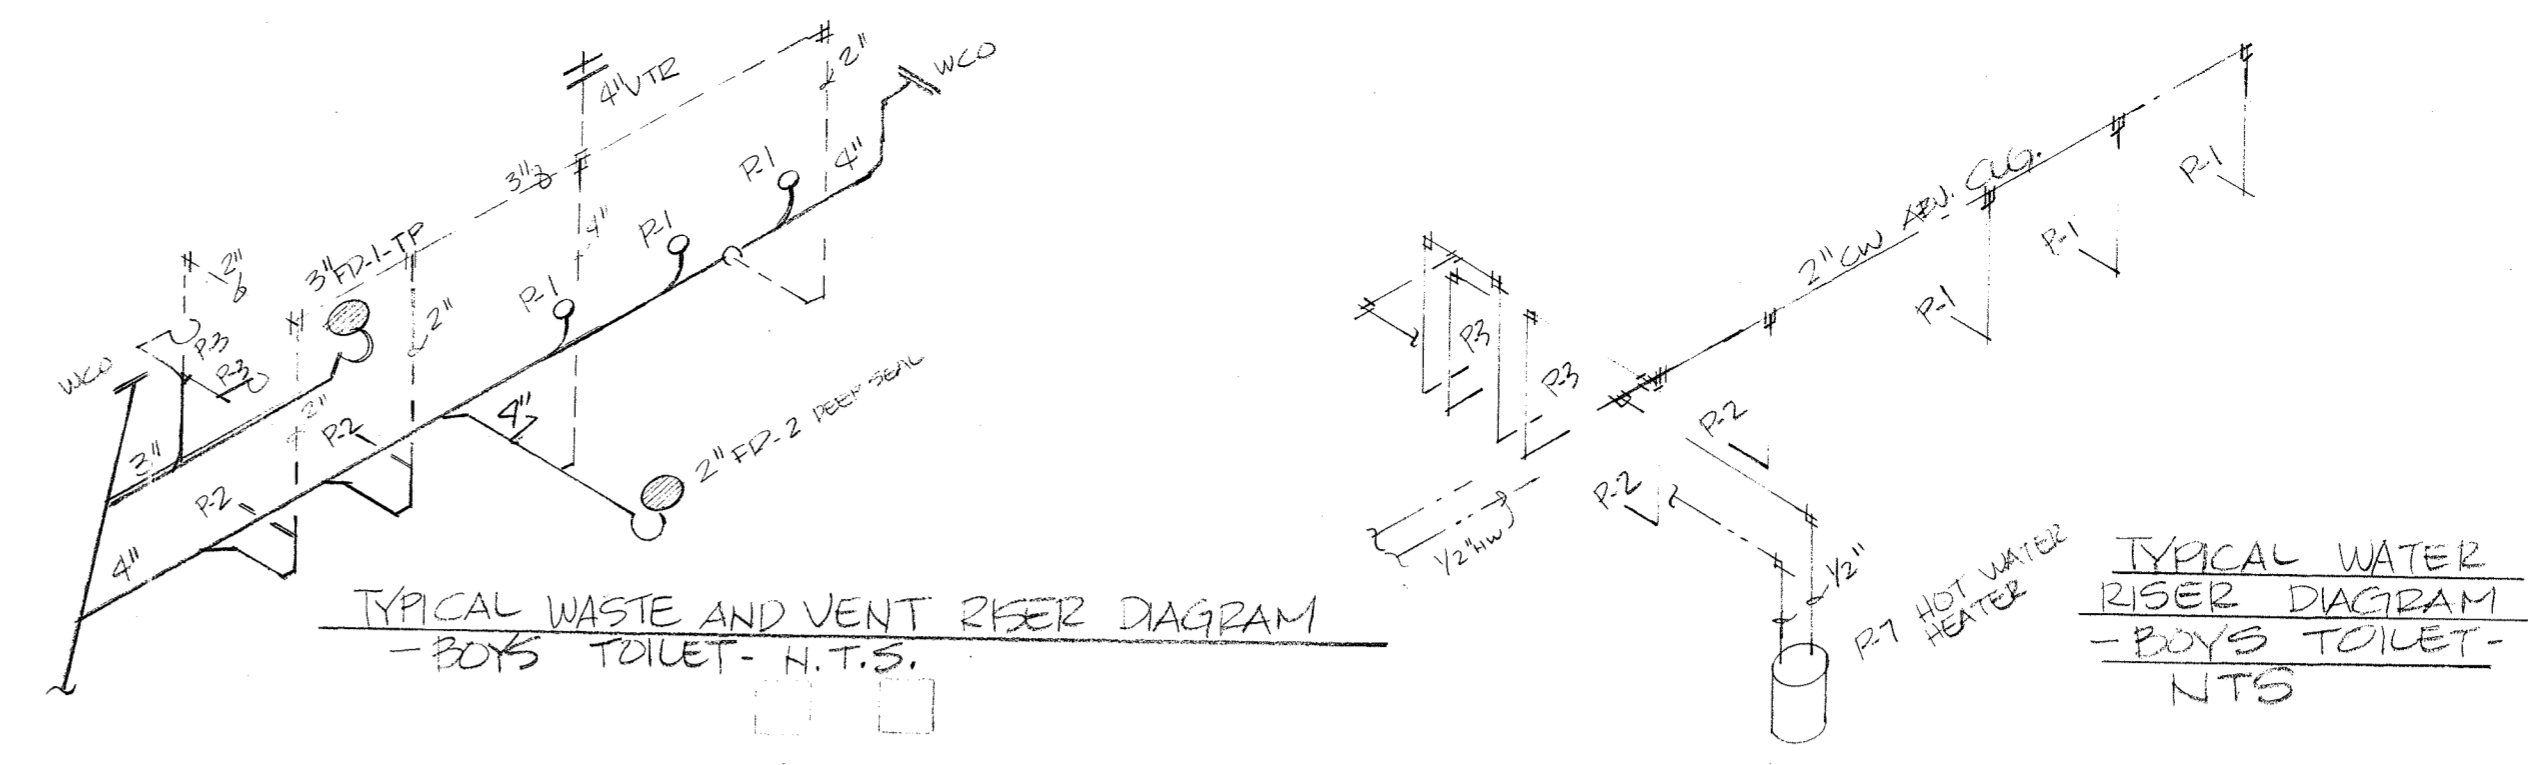 4"VTR
2"
WCO
3"
P-1
4"
4"
P-1
P-1
3"FD-1-TP
2"
P-3
P-3
WCO
2"
2"
P-2
3"
P-2
4"
4"
2" FD-2 DEEP SEAL
TYPICAL WASTE AND VENT RISER DIAGRAM
-BOYS TOILET- N.T.S.
2"CW ABV. CLG.
P-1
P-1
P-1
P-3
P-3
P-2
P-2
1/2"HW
1/2"
P-7 HOT WATER
HEATER
TYPICAL WATER
RISER DIAGRAM
-BOYS TOILET-
NTS